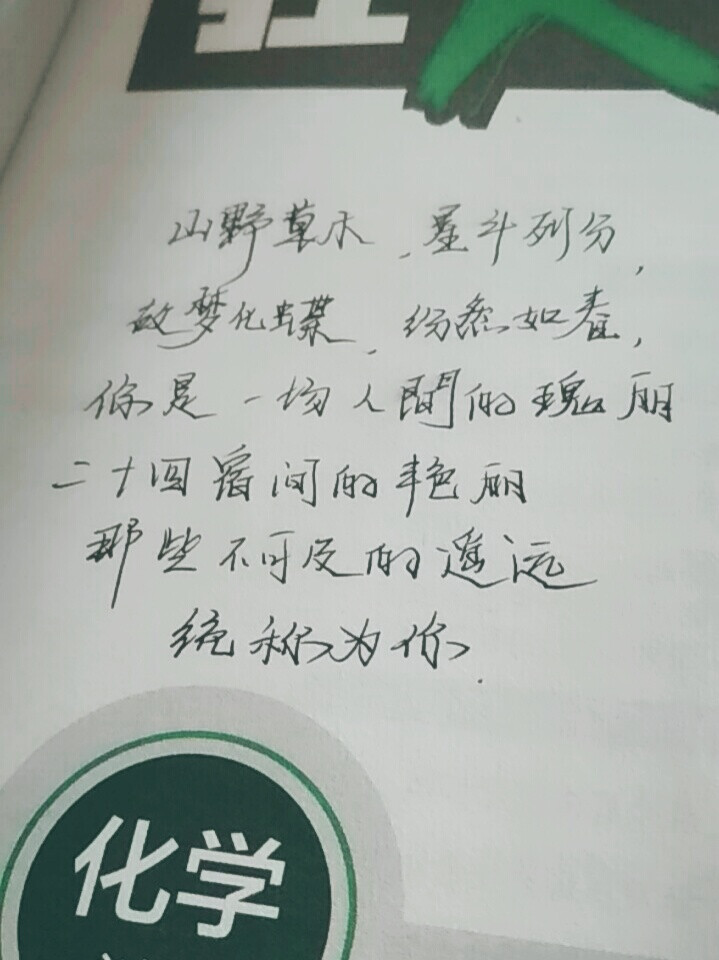 狂
山野草木,星斗列分,
故梦化蝶,纷然如春,
你是一场人間的瑰丽
二十四宿间的艳丽
那些不可及的遥远
统称为你.
化学